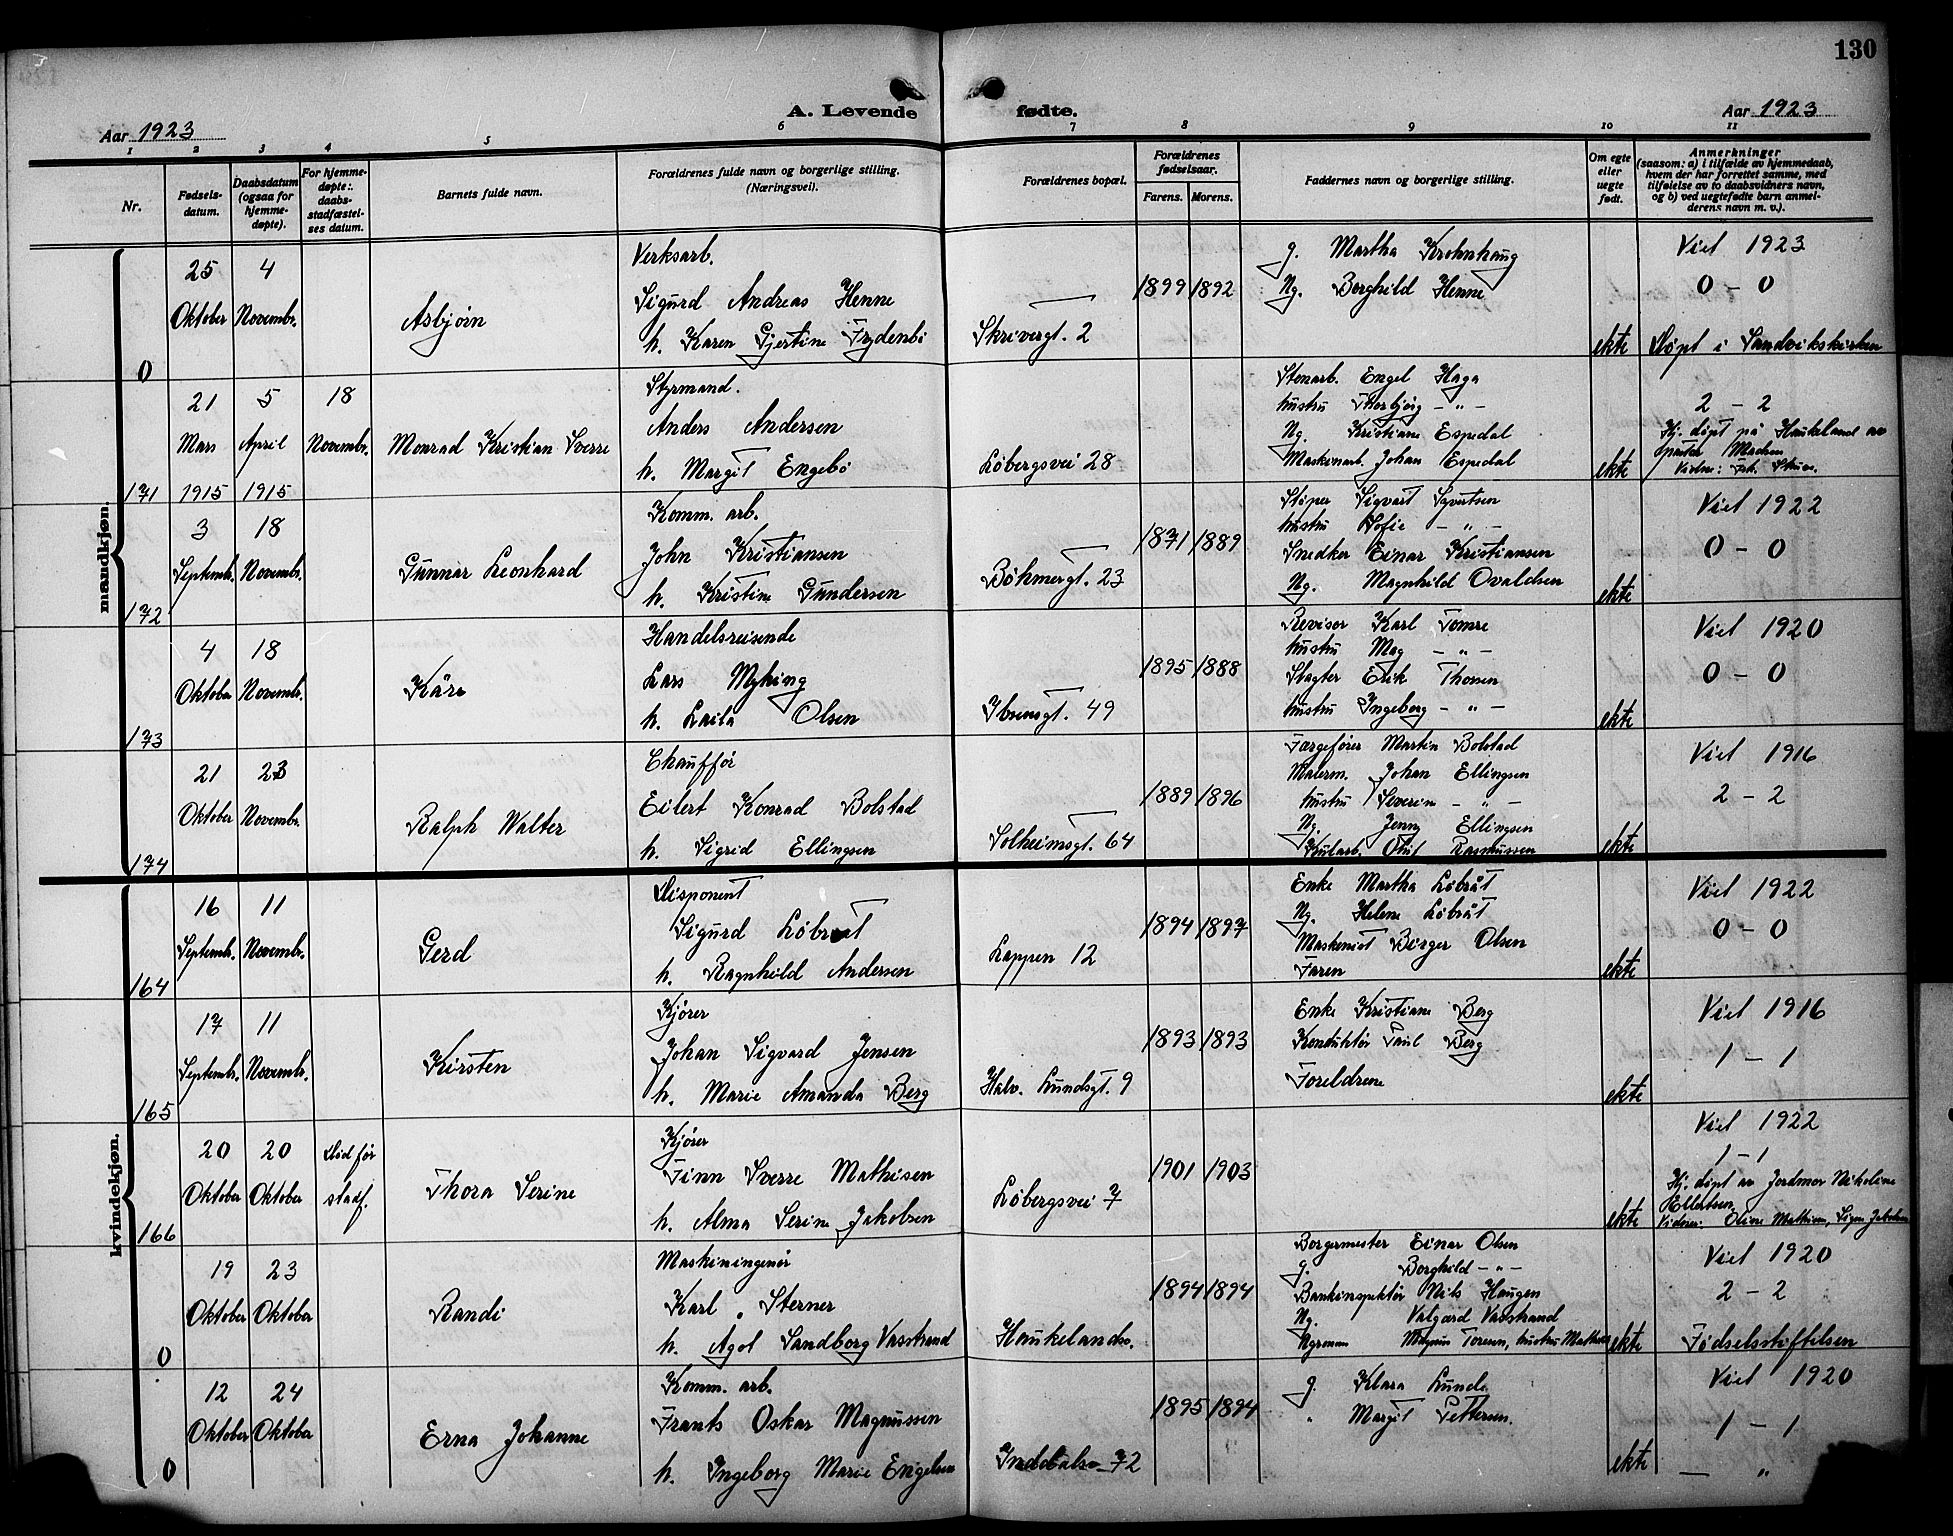 130
A. Levende fødte.
Aar 1923
Aar 1923
1 2 3 4 5 6 7 8 9 10 11
Nr.
Fødsels-
datum.
Daabsdatum
(ogsaa for
hjemme-
døpte).
For hjemme-
døpte:
daabs-
stadfæstel-
ses datum.
Barnets fulde navn.
Forældrenes fulde navn og borgerlige stilling.
(Næringsvei).
Forældrenes bopæl.
Forældrenes
fødselsaar.
Farens. Morens.
Faddernes navn og borgerlige stilling.
Om egte
eller
uegte
født.
Anmerkninger
(saasom: a) i tilfælde av hjemmedaab,
hvem der har forrettet samme, med
tilføielse av to daabsvidners navn,
og b) ved uegtefødte barn anmel-
derens navn m. v.).
mandkjøn.
0
25 Oktober
4 Novembr.
Asbjørn
Verksarb.
Sigurd Andreas Henne
h. Karen Gjertine Frydenbö
Skrivergt. 2
1899 1892
g. Martha Krohnhaug
Ng. Borghild Henne
ekte
Viet 1923
0 - 0
Døpt i Sandvikskirken
171
21 Mars 1915
5 April 1915
18 Novembr.
Monrad Kristian Sverre
Styrmand.
Anders Andersen
h. Margit Engebö
Löbergsvei 28
Stenarb. Engel Haga
hustru Thorbjörg - " -
Ng. Kristiane Espedal
Maskinarb. Johan Espedal
ekte
2 - 2
Hj. döpt på Haukeland av
Vidne:
172
3 Septembr.
18 Novembr.
Gunnar Leonhard
Komm. arb.
John Kristiansen
h. Kristine Gundersen
Böhmergt. 23
1871 1889
Støper Sigvart Syvertsen
hustru Sofie - " -
Snedker Einar Kristiansen
Ng. Magnhild Ovaldsen
ekte
Viet 1922
0 - 0
173
4 Oktober
18 Novembr.
Kåre
Handelsreisende
Lars Myking
h. Laila Olsen
Ibsensgt. 49
1895 1888
Revisor Karl Tomre
hustru Mag - " -
Slagter Erik Thorsen
hustru Ingeborg - " -
ekte
Viet 1920
0 - 0
174
21 Oktober
23 Novembr.
Ralph Walter
Chauffør
Eilert Konrad Bolstad
h. Sigrid Ellingsen
Solheimsgt. 64
1889 1896
Færgefører Martin Bolstad
Malerm. Johan Ellingsen
hustru Severine - " -
Ng. Jenny Ellingsen
Oluf Rasmussen
ekte
Viet 1916
2 - 2
kvindekjøn.
164
16 Septembr.
11 Novembr.
Gerd
Disponent
Sigurd Löbråt
h. Ragnhild Andersen
Lappen 12
1894 1897
Enke Martha Löbråt
Ng. Helene Löbråt
Maskenist Birger Olsen
Faren
ekte
Viet 1922
0 - 0
165
17 Septembr.
11 Novembr.
Kirsten
Kjører
Johan Sigvard Jensen
h. Marie Amanda Berg
Halv. Lundsgt. 9
1893 1893
Enke Kristiane Berg
Konduktör Paul Berg
Foreldrene
ekte
Viet 1916
1 - 1
166
20 Oktober
20 Oktober
Död før
stadf.
Thora Serine
Kjører
Finn Sverre Mathisen
h. Alma Serine Jakobsen
Löbergsvei 7
1901 1903
ekte
Viet 1922
1 - 1
Hj. döpt av Jordmor Nikoline
Ellertsen
Vidner: Oline Mathisen, Signe Jakobsen
0
19 Oktober
23 Oktober
Randi
Maskiningeniör
Karl Sterner
h. Agot Sandborg Vasstrand
Haukelandsv.
1894 1894
Borgermester Einar Olsen
g. Borghild - " -
Bankinspektör Nils Haugen
Ng. Valgard Vasstrand
hustru Mathea
ekte
Viet 1920
2 - 2
Fødselsstiftelsen
0
12 Oktober
24 Oktober
Erna Johanne
Komm. arb.
Frants Oskar Magnussen
h. Ingeborg Marie Engelsen
Inddalsv. 72
1895 1894
g. Klara Lunde
" Margit Pettersen.
ekte
Viet 1920
1 - 1
— "